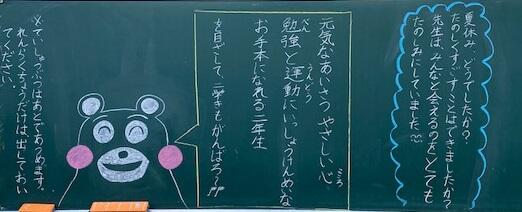 夏休み、どうでしたか?
たのしくすごすことはできましたか?
先生は、みんなと会えるのをとても
たのしみにしていました。
元気なあいさつ やさしい心
こころ
勉強と運動にいっしょうけんめいな
べん うんどう
お手本になれる二年生
を目ざして、二学きもがんばろう!!
※ていしゅつぶつはあとであつめます。
れんらくちょうだけは出しておい
てください。